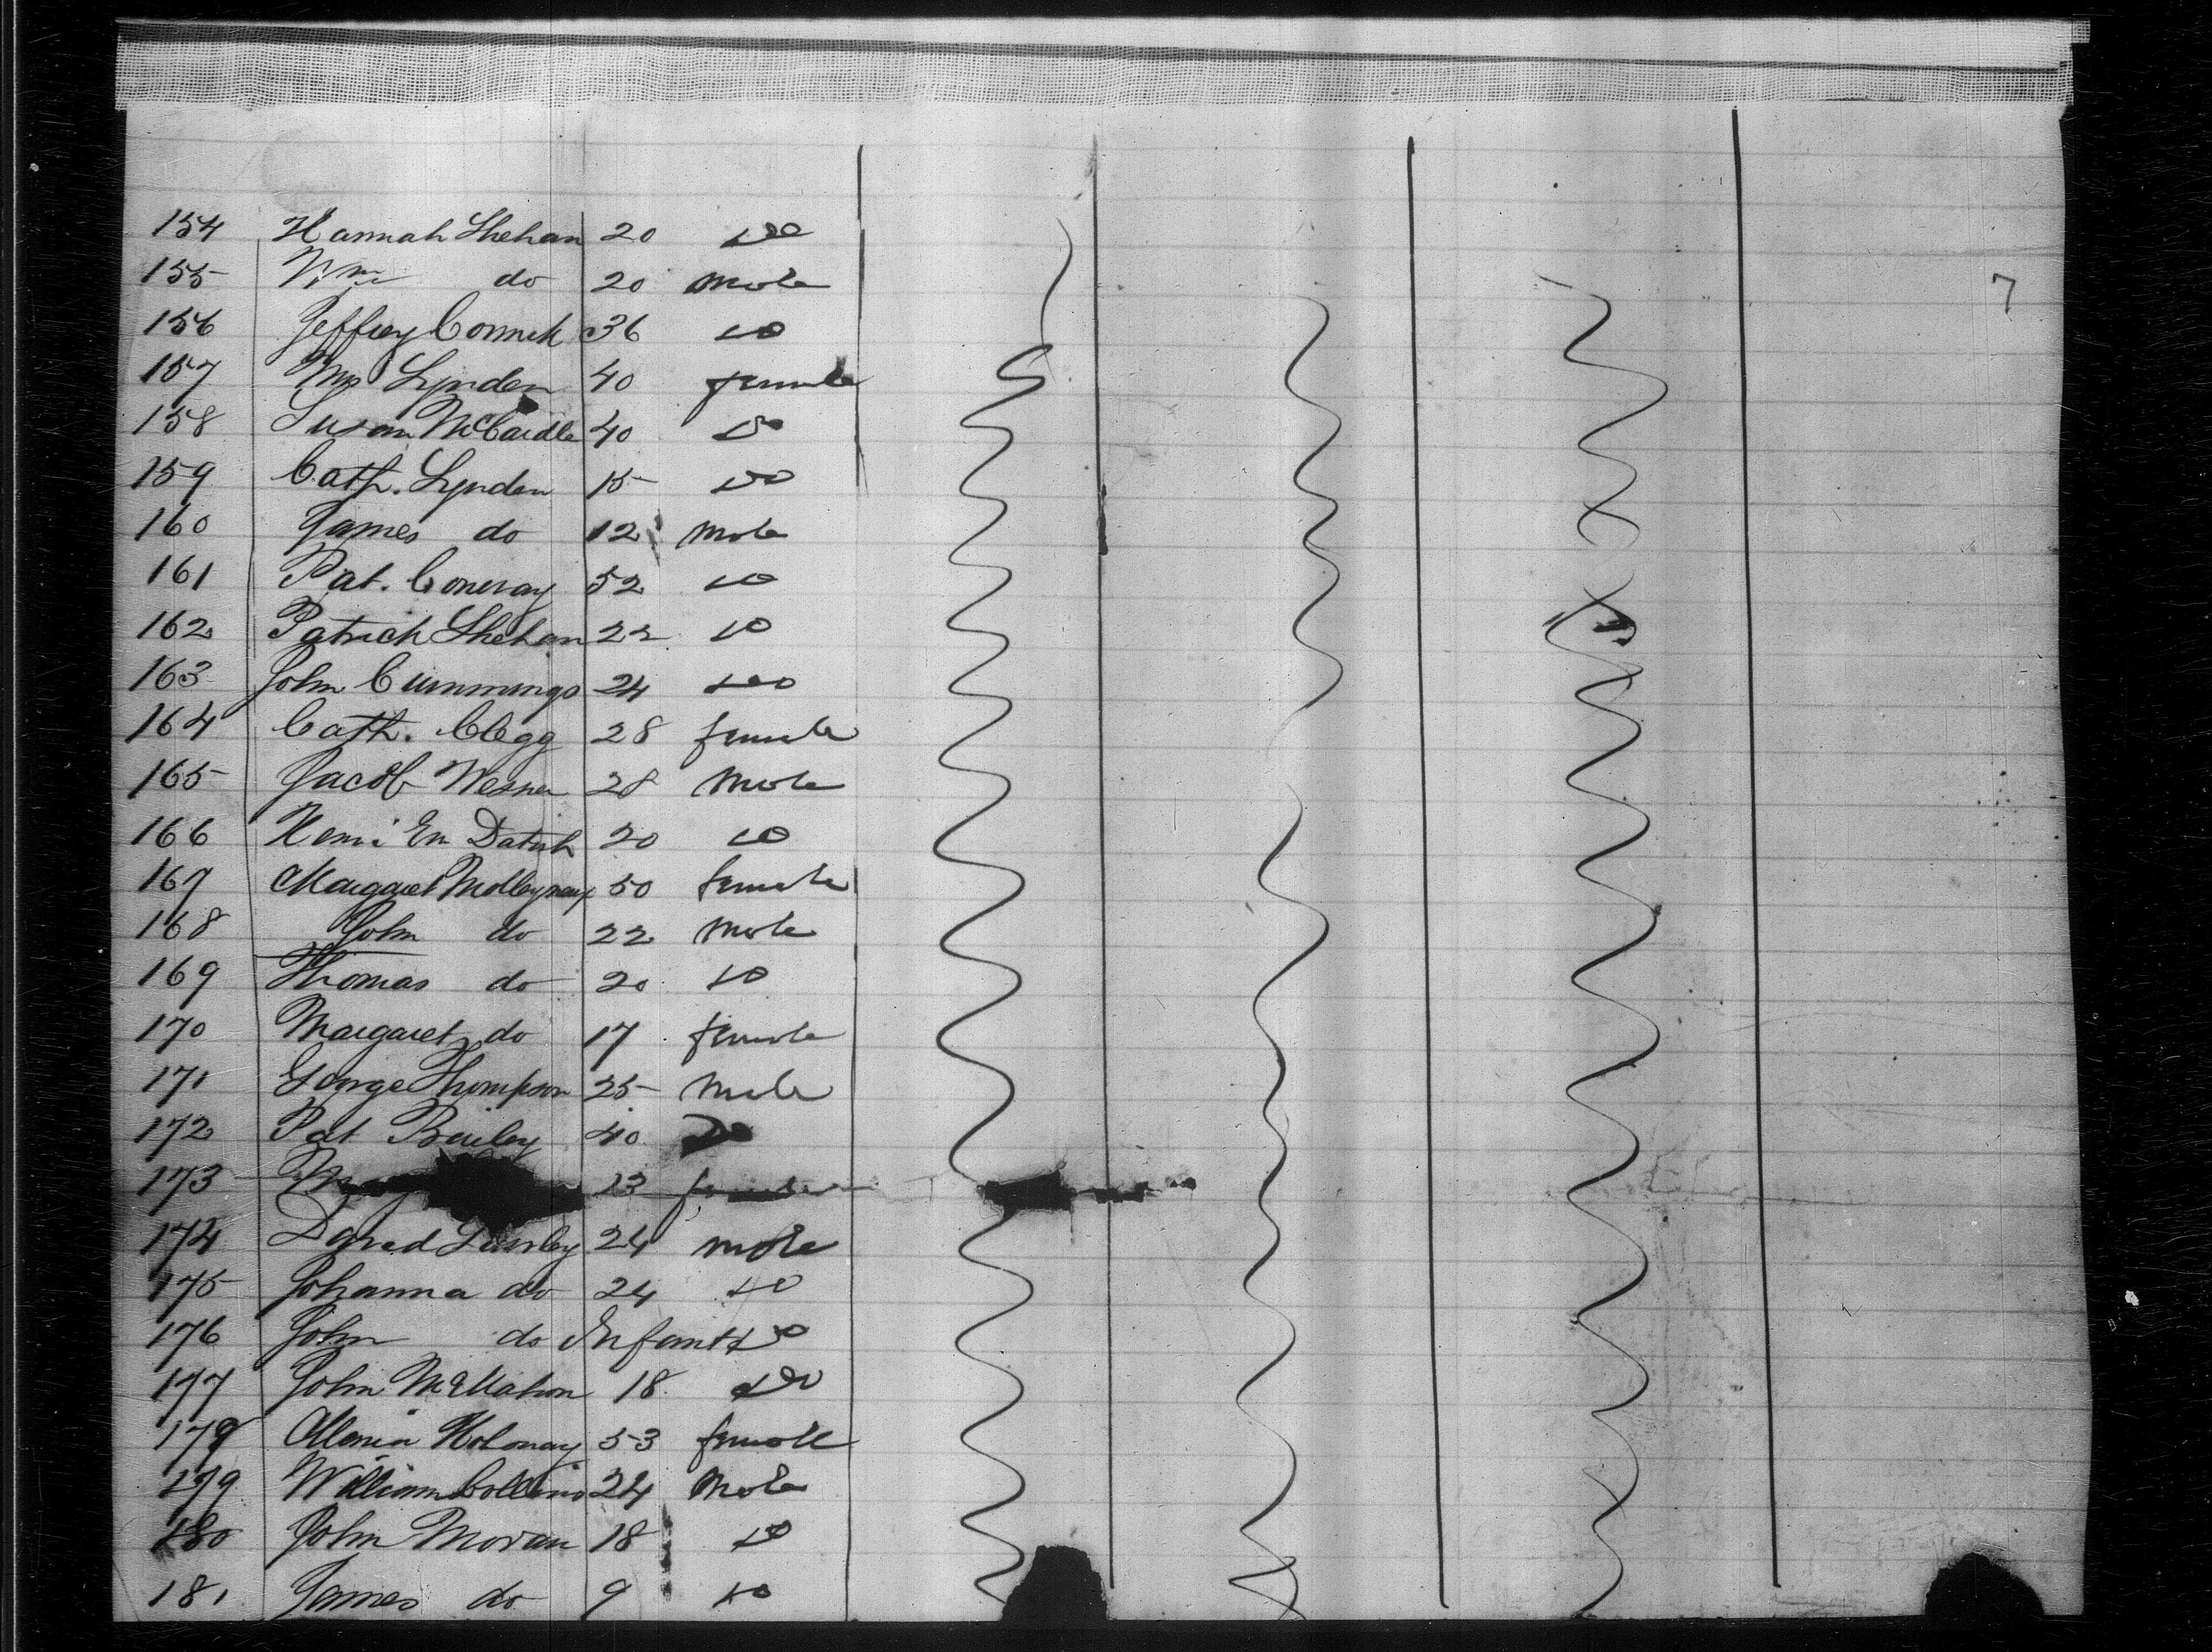 7
154 Hannah Shehan 20 do
155 Wm do 20 male
156 Jeffrey Cormick 36 do
157 Mrs Lynden 40 female
158 Susan McCardle 40 do
159 Cath. Lynden 15 do
160 James do 12 male
161 Pat. Conway 52 do
162 Patrick Shehan 22 do
163 John Cummings 24 do
164 Cath. Clegg 28 female
165 Jacob Wesner 28 male
166 Henri 20 do
167 Margaret Molleyneux 50 female
168 John do 22 male
169 Thomas do 20 do
170 Margaret do 17 female
171 George Thompson 25 male
172 Pat Bailey 40 do
173 23 female
174 David 24 male
175 Johanna do 24 do
176 John do Infant do
177 John McMahon 18 do
178 Maria Holonay 53 female
179 William Collins 24 male
180 John Moran 18 do
181 James do 9 do